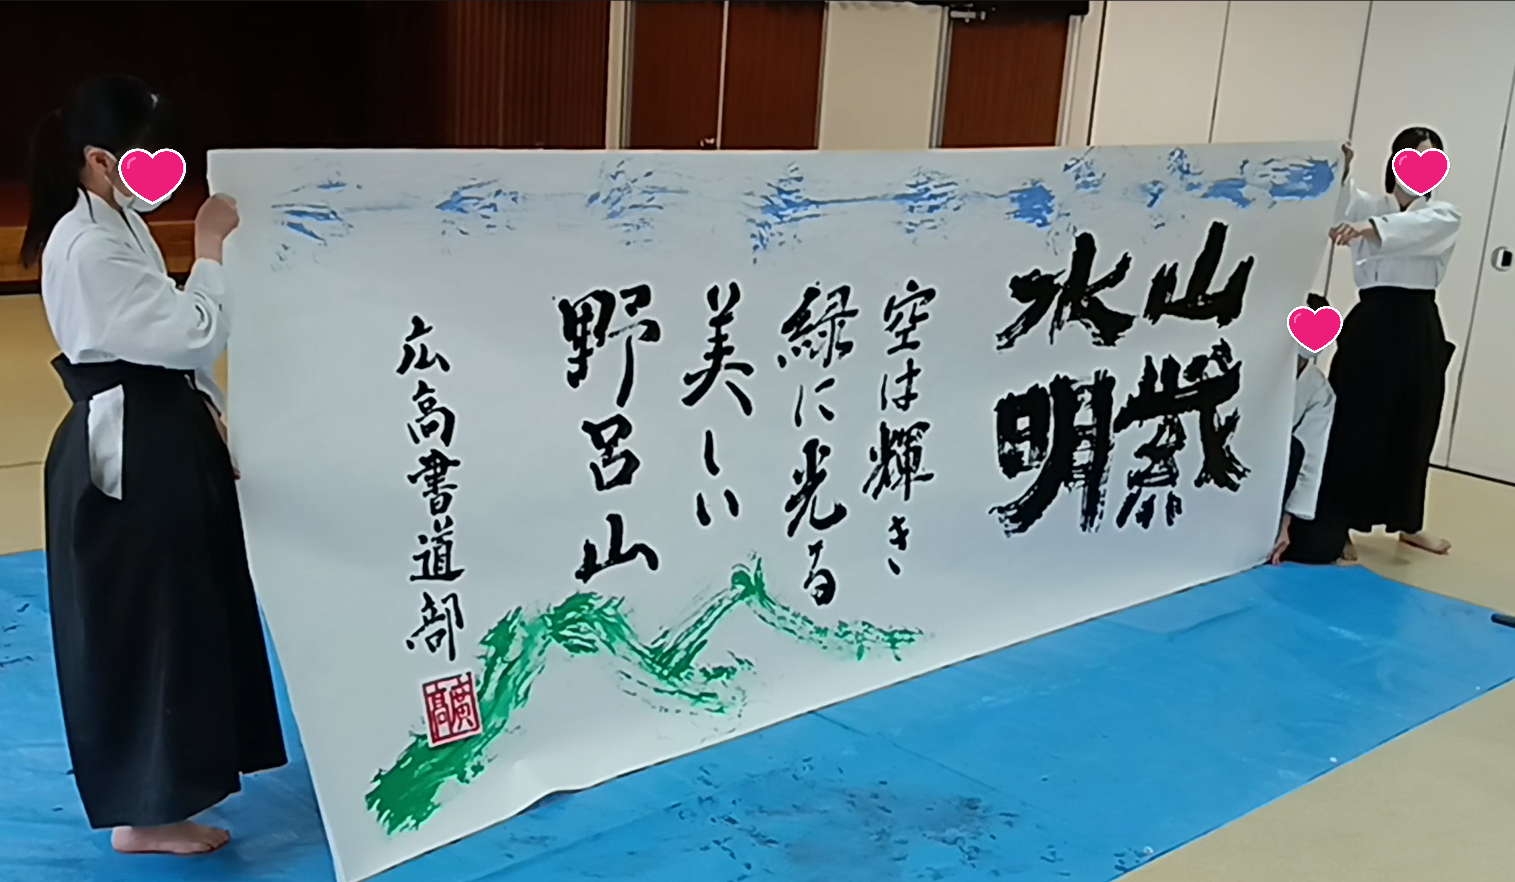 山紫
水明
空は輝き、
緑に光る
美しい
野呂山
広高書道部
廣高